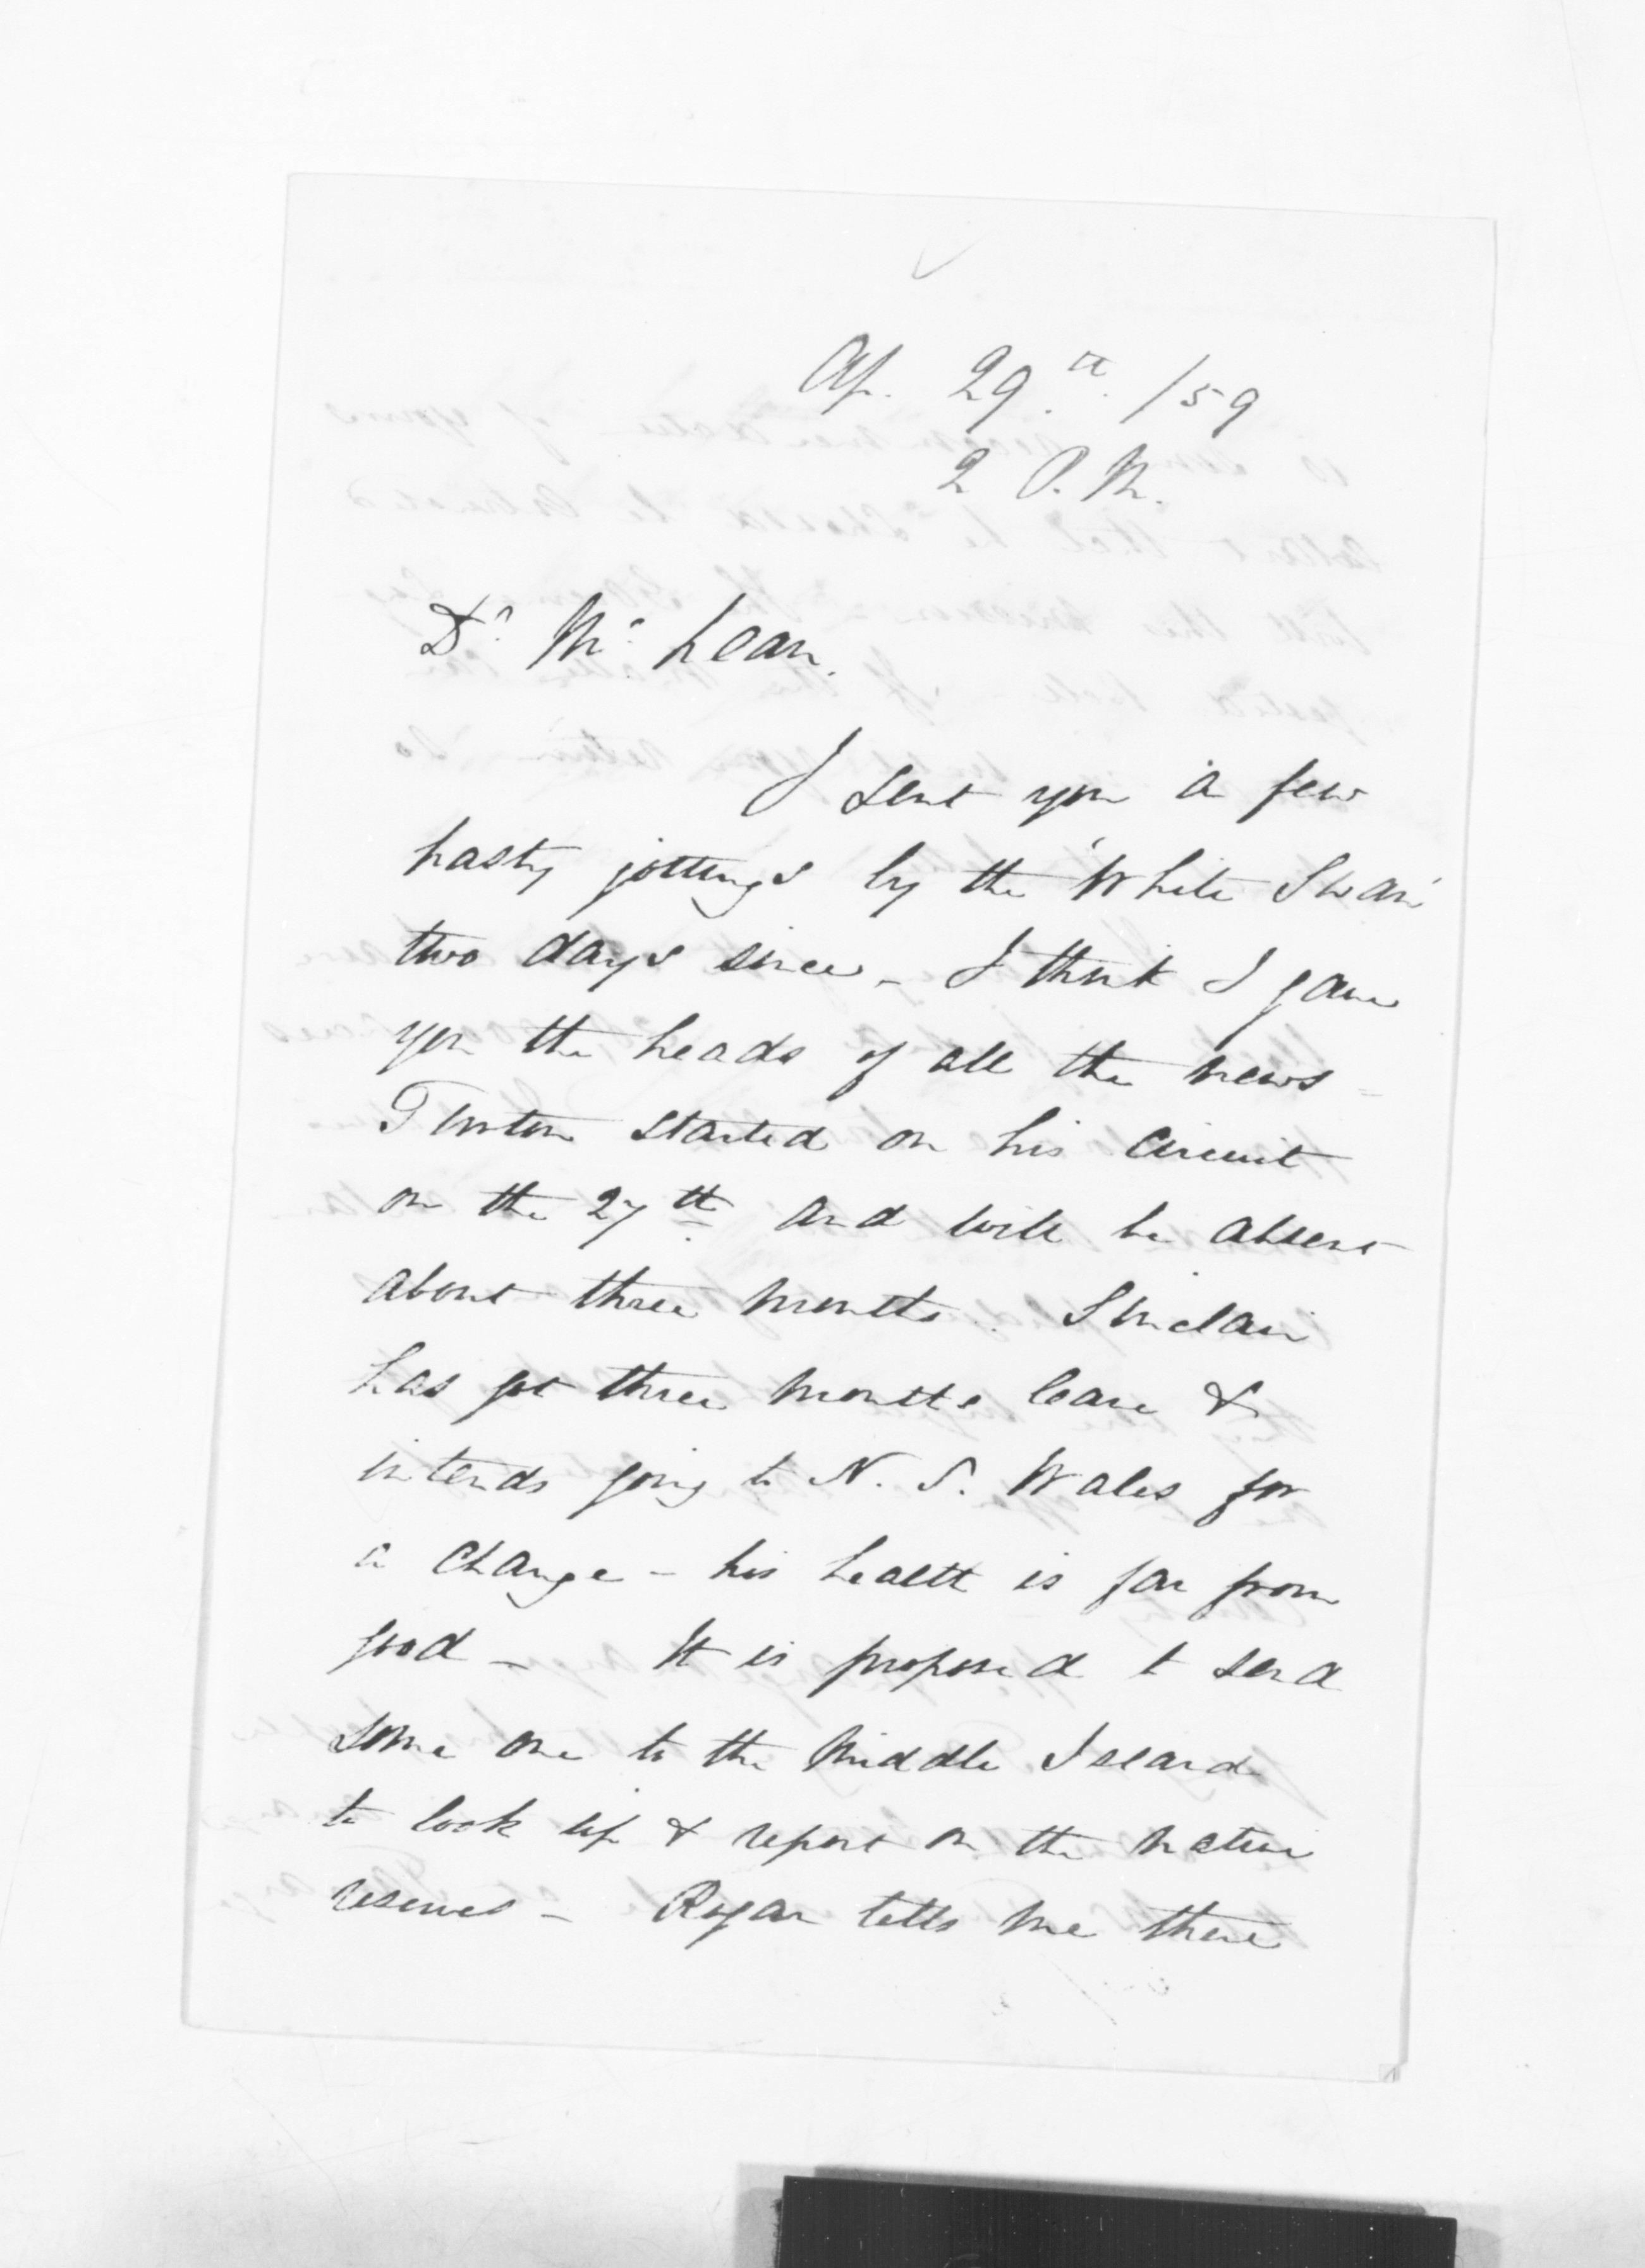 Ap. 29th. /59
2 P.M.
Dr. Mc Lean.
I sent you a few
hasty jottings by the 'White Swan'
two days since - I think I gave
you the heads of all the news -
Turton started on his circuit
on the 27th and will be absent
about three months. Sinclair
has got three months leave &
intends going to N. S. Wales for
a change - his health is far from
good - It is proposed to send
some one to the Middle Island
to look up & report on the native
reserves - Rogan tells me there